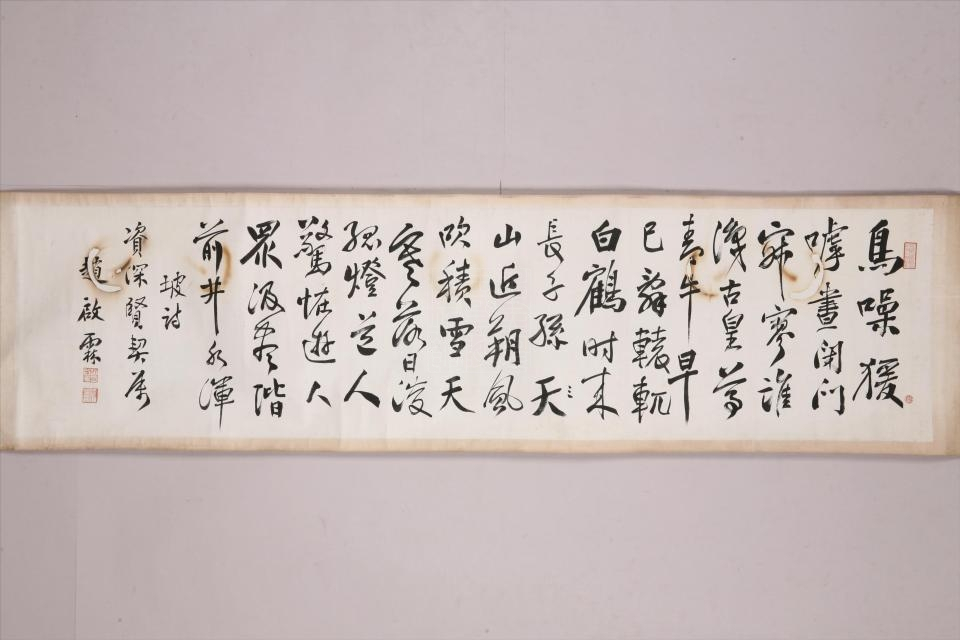 鳥噪猨
嘑晝閉門
寂寥誰
識古皇尊
青牛早
已辭轅軏
白鶴時來
長子孫天
山近朔風
吹積雪天
寒落日淡
孤燈道人
驚怪遊人
眾汲盡階
前井水渾
坡詩
資深賢契屬
趙啟霖